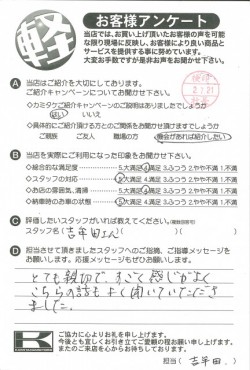 軽
お客様アンケート
当店では、お買い上げ頂いたお客様の声を可能な限り現場に反映し、お客様により良い商品と
サービスを提供する事に努めています。
大変お手数ですが是非お声をお聞かせ下さい。
2.2.21
A 当店はご紹介を大切にしております。
ご紹介キャンペーンについてお聞かせ下さい。
◇カミタケご紹介キャンペーンのご説明はありましたでしょうか
はい いいえ
◇具体的にご紹介頂ける方とのご関係をお聞かせ頂けますでしょうか
ご親族 ご友人 職場の方 機会があれば紹介したい
B 当店を実際にご利用になった印象をお聞かせ下さい。
◇総合的な満足度 5.大満足 4.満足 3.ふつう 2.やや不満 1.不満
◇スタッフの対応 5.大満足 4.満足 3.ふつう 2.やや不満 1.不満
◇お店の雰囲気、清掃 5.大満足 4.満足 3.ふつう 2.やや不満 1.不満
◇納車時のお車の状態 5.大満足 4.満足 3.ふつう 2.やや不満 1.不満
C 評価したいスタッフがいれば教えてください。(複数回答可)
スタッフ名( 吉年田さん )
D 担当させて頂きましたスタッフへのご指摘、ご指導メッセージをお願いします。応援メッセージもぜひお願いします。
とても親切で、すごく感じがよく
こちらの話もよく聞いていただき
ました。
K
ご協力に心よりお礼を申し上げます。
今後とも宜しくお引き立てご愛顧の程お願い申し上げます。
またのご来店を心からお待ちしております。
担当( 吉年田 )